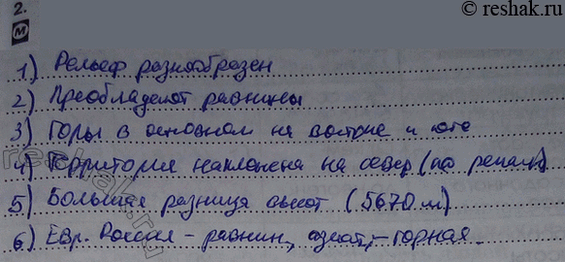 2.
© reshak.ru
М
1) Рельеф разнообразен
2) Преобладают равнины
3) Горы в основном на востоке и юге
4) Территория наклонена на север (по рекам)
5) Большая разница высот (5670 м)
6) Евр. Россия – равнин, азиат, – горная.
reshak.ru